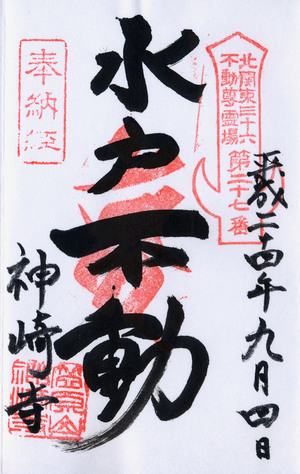 北関東三十六
不動尊霊場
第二十七番
平成二十四年九月四日
水戸不動
奉納経
神崎寺